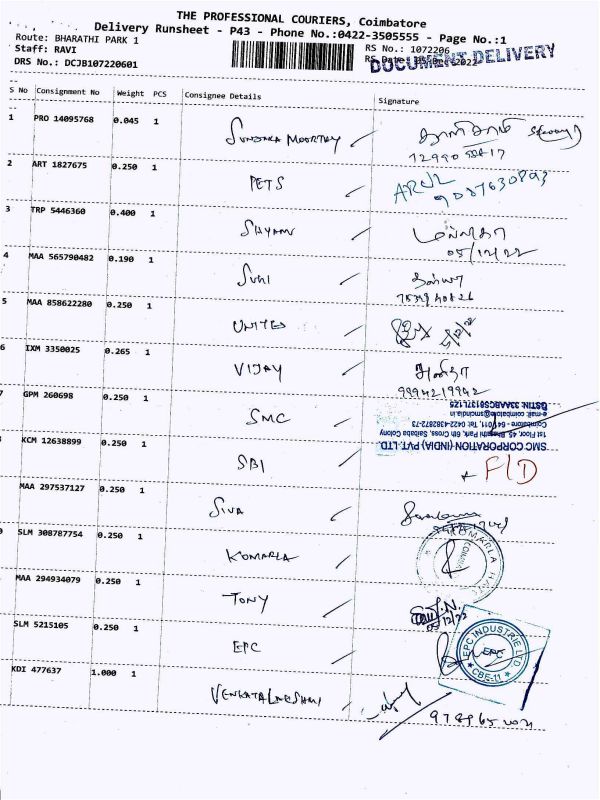 THE PROFESSIONAL COURIERS, Coimbatore
Delivery Runsheet - P43 - Phone No.:0422-3505555 - Page No.:1
Route: BHARATHI PARK 1
RS No.: 1072206
Staff: RAVI
DOCUMENT DELIVERY
DRS No.: DCJB107220601
S No Consignment No Weight PCS Consignee Details Signature
1 PRO 14095768 0.045 1
2 ART 1827675 0.250 1 PETS
ARUL
3 TRP 5446360 0.400 1 SHYAM
05/12/22
4 MAA 565790482 0.190 1 SUNI
5 MAA 858622280 0.250 1 UNITED
6 IXM 3350025 0.265 1 VIJAY
9994219942
7 GPM 260698 0.250 1 SMC
SMC CORPORATION (INDIA) PVT. LTD.
1st Floor, 45, Bharathi Park, 6th Cross, Saibaba Colony
Coimbatore - 641 011, Tel: 0422-4382872-73
e-mail: coimbatore@smcindia.in
KCM 12638899 0.250 1 SBI
F/D
MAA 297537127 0.250 1 SIVA
SLM 308787754 0.250 1 KOMARLA
KOMARLA
MAA 294934079 0.250 1 TONY
05/12/22
SLM 5215105 0.250 1 EPC
EPC INDUSTRIE LTD
EPC
CBE-11
KDI 477637 1.000 1 VENKATALAKSHMI